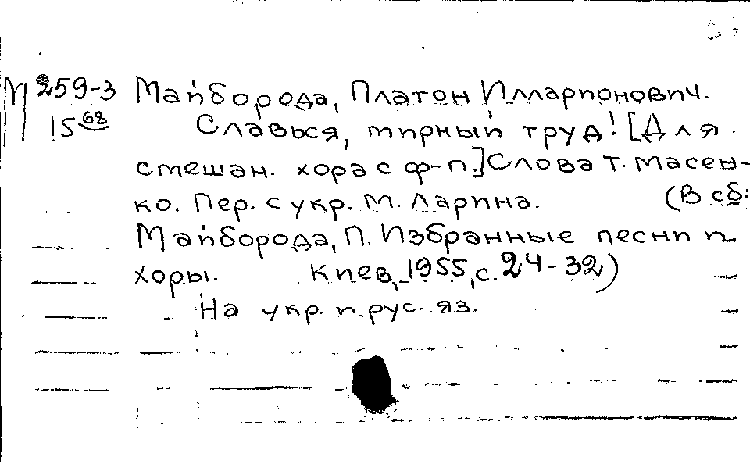 М 259-3 Майборода, Платон Илларионович.
15 68 Славься, мирный труд! [Для
смешан. хора с ф-п.] Слова Т. Масен-
ко. Пер. с укр. М. Ларина. (В сб:
Майборода, П. Избранные песни и
хоры. Киев, 1955, с. 24-32)
На укр. и рус. яз.